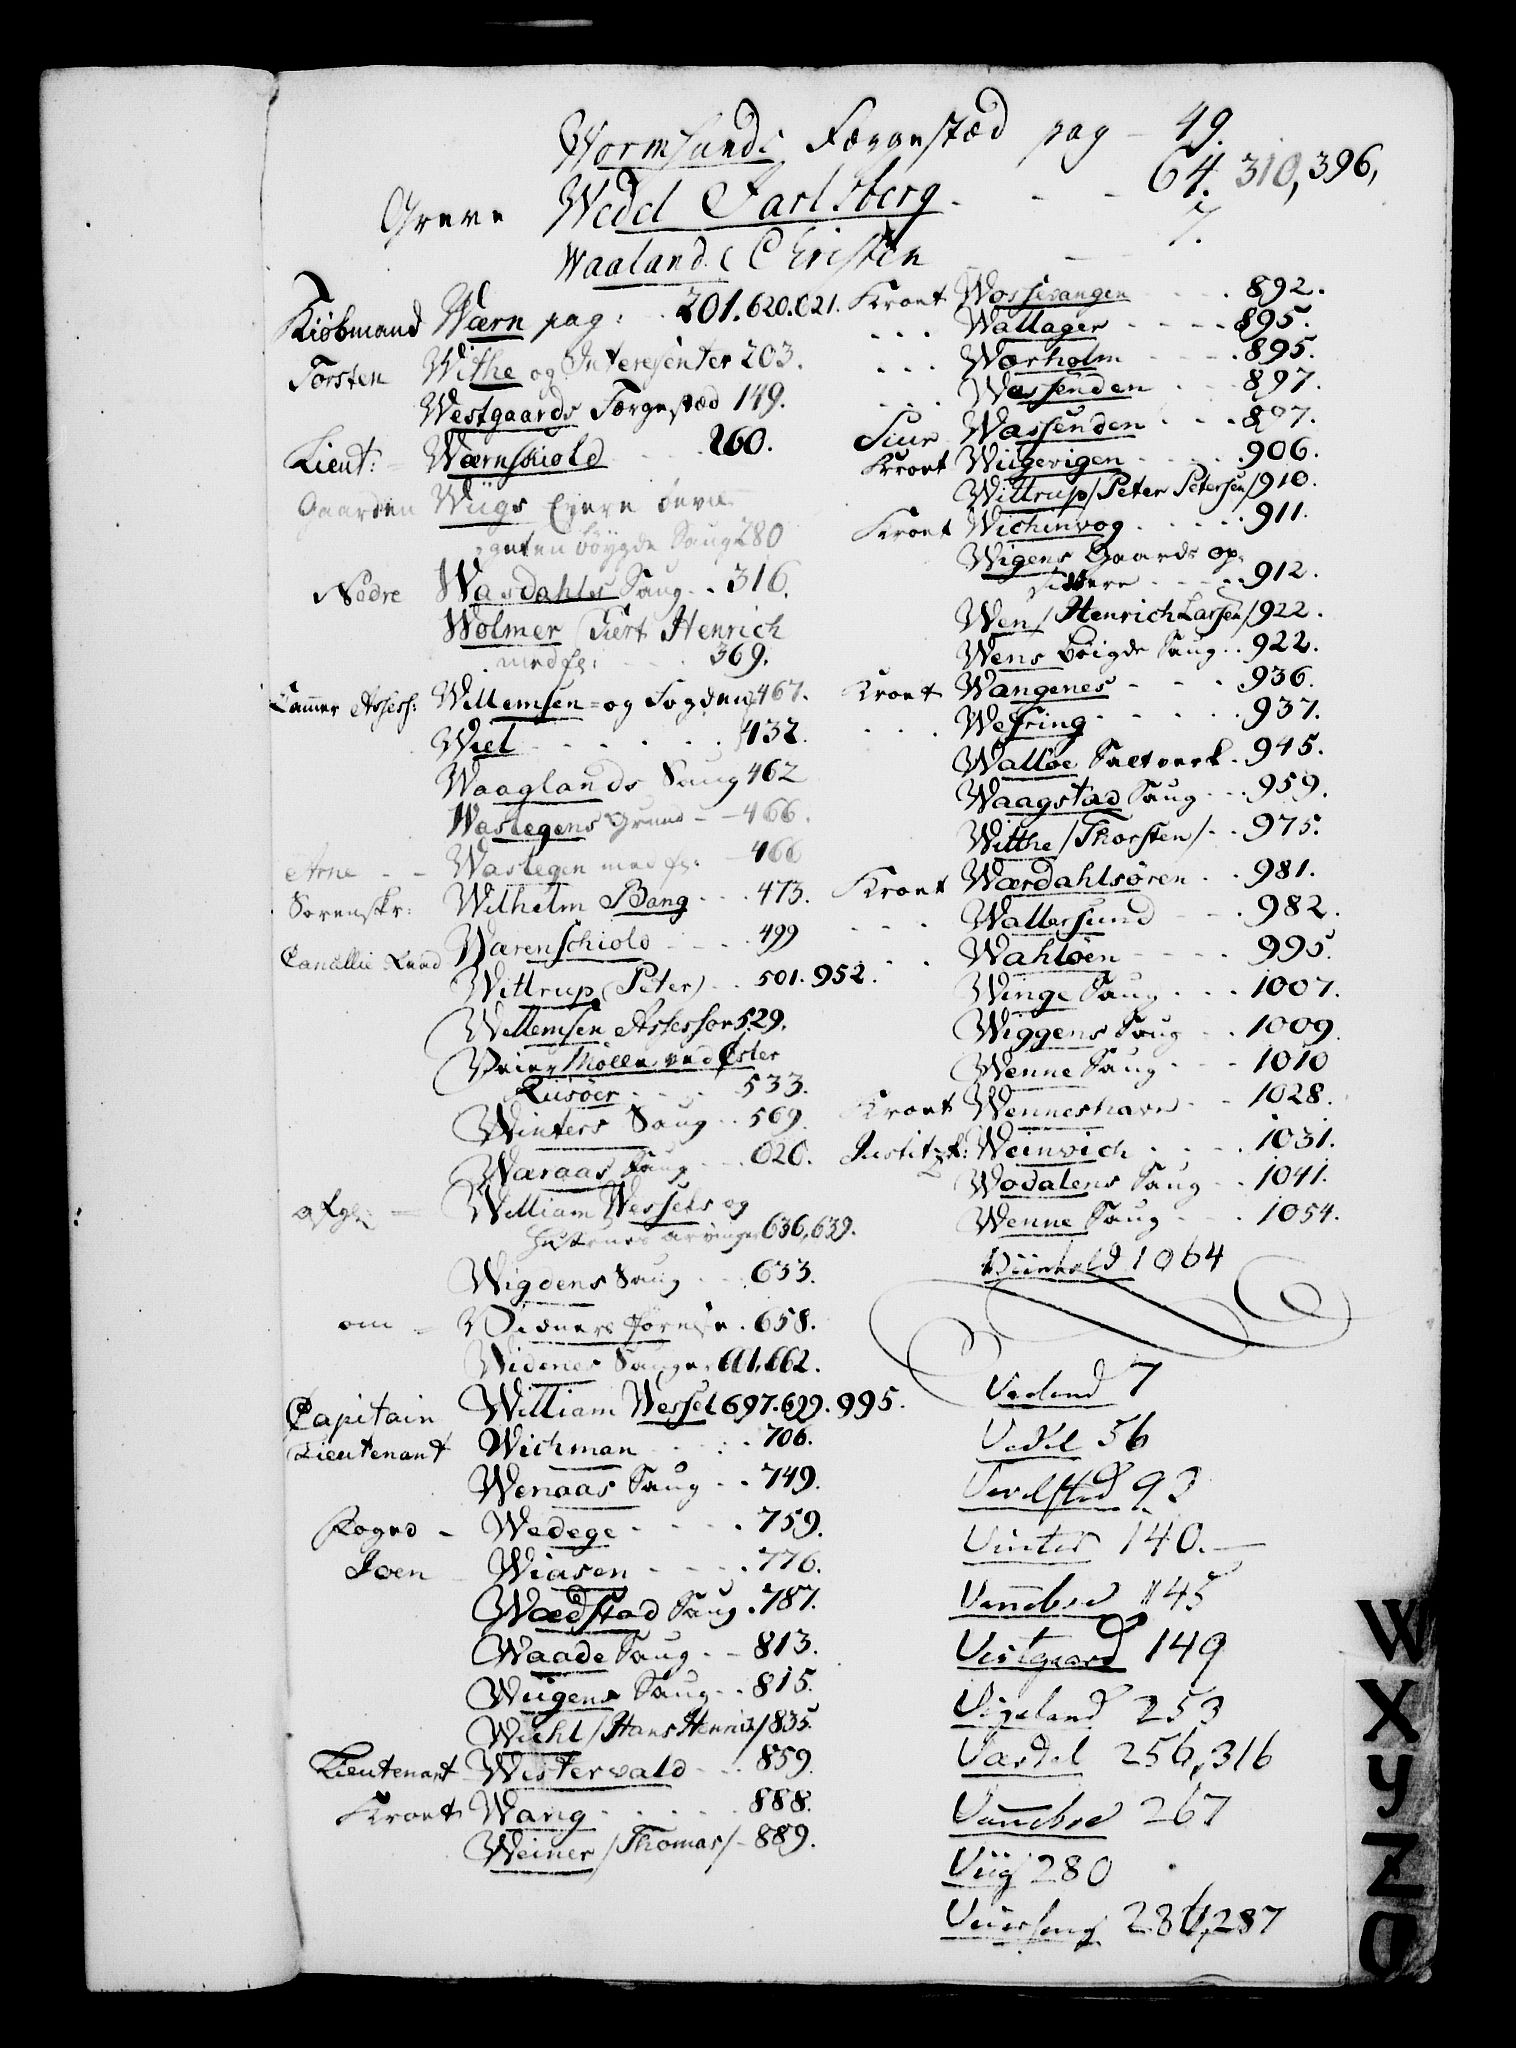 Wormsunds Færgestæd pag - 49.
Greve Wedel Jarlsberg - - - 64. 310, 396,
Waaland Christen - - 7.
Kiøbmand Wærn pag: 201. 620. 621.
Torsten Withe og Interesenter 203.
Westgaards Færgestæd 149.
Lieut: Wærnskiold 260.
Gaarden Wiigs Eyere
bøygde Saug 280
Nedre Wasdahls Saug . . 316.
Wolmer Henrich
med fl: 369.
Cammer Assess: Willemsen og Fogden 467.
Wiel 432.
Waaglands Saug 462
Waslegens Grund - - 466.
Arne - - Waslegen med fl: 466
Sorenskr: Wilhelm Bang . . . 473.
Cancellie Raad Wærenschiold 499
Wittrup (Peter) . . 501. 952.
Willemsen Assessor 529.
Veier Mölle ved Øster
Riisöer 533.
Winters Saug . . 569.
Wæraas Saug . . . 626.
afgl: William Wessels og
Hustrues arvinger 636, 639.
Wigdens Saug . . . 633.
om - Vidners førelse . 658.
Widenes Sauger 661, 662.
Capitain William Wessel 697. 699. 995.
Lieutenant Wichman 706.
Wenaas Saug . . 749.
Foged - Wedege 759.
Joen Wiasen 776.
Wædstad Saug . 787.
Waade Saug . - 813.
Wiigens Saug . . 815.
Wiehl /Hans Henrich/ 835.
Lieutenant Westervald 859.
Kroet Wang 888.
Weiner /Thomas/ - 889.
Kroet Wossevangen 892.
. . . Wallager 895.
. . . Wærholm 895.
. . . Wassenden 897.
Siur Wassenden 897.
Kroet Wiigevigen 906.
Wittrup /Peter Petersen/ 910.
Kroet Wichinvog 911.
Wigens Gaards op-
sittere 912.
Wen /Henrich Larsen/ 922.
Wens bøigde Saug . . 922.
Kroet Wangenes 936.
. . . Wefring 937.
Walløe Saltverk . 945.
Waagstad Saug . . . 959.
Witthe /Thorsten/ . . 975.
Kroet Wærdahlsören . . 981.
. . . Wallersund 982.
. . Wahlöen 995.
Winge Saug . . . 1007.
Wiggens Saug . . 1009.
Wenne Saug 1010
Kroet Wenneshavn 1028.
Justitzr: Weinvich 1031.
Wodalens Saug . . 1041.
Wenne Saug 1054.
1064
Veeland 7
Vedel 56
93
Vinter 140.
145
Vestgaard 149
Vigeland 253
Vasdel 256, 316
267
Viig 280
286, 287
W
X
Y
Z
Ø